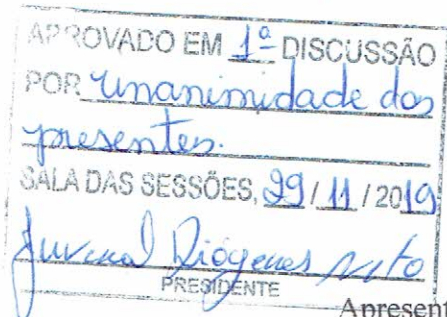 APROVADO EM 1ª DISCUSSÃO
POR unanimidade dos
presentes.
SALA DAS SESSÕES, 29 / 11 / 2019
Juvenal Diógenes Neto
PRESIDENTE
Apresent